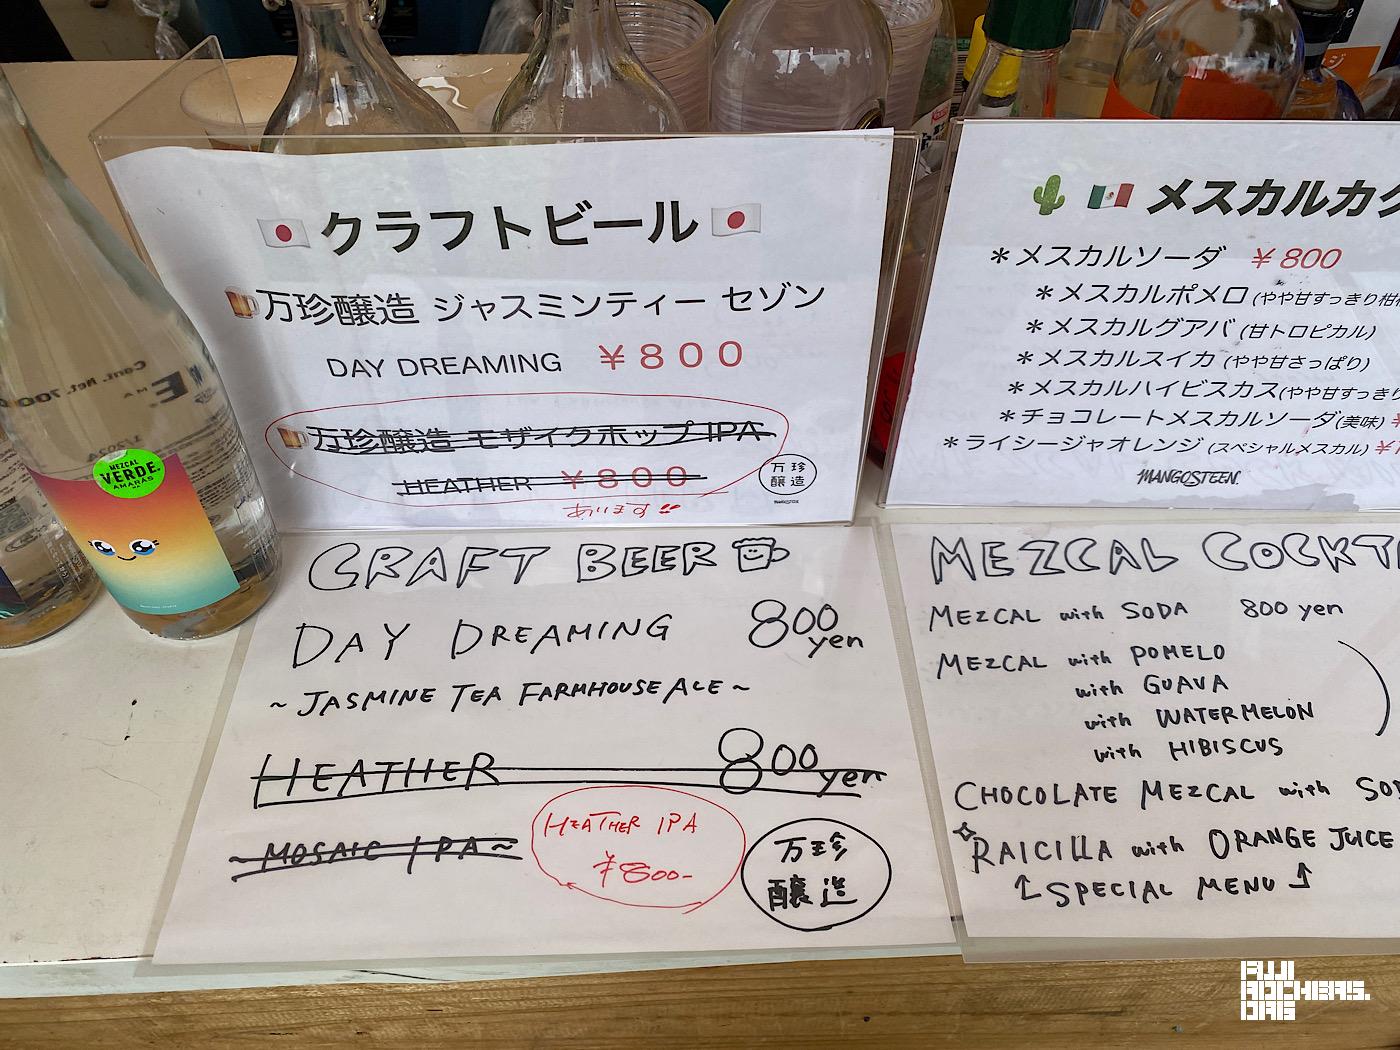 クラフトビール
万珍醸造 ジャスミンティー セゾン
DAY DREAMING ￥８００
万珍醸造 モザイクホップIPA
HEATHER ￥８００
あります
万珍
醸造
CRAFT BEER
DAY DREAMING 800 yen
~JASMINE TEA FARMHOUSE ALE~
HEATHER 800 yen
~MOSAIC IPA~
HEATHER IPA
¥800-
万珍
醸造
メスカルカク
＊メスカルソーダ ￥800
＊メスカルポメロ (やや甘すっきり柑
＊メスカルグアバ (甘トロピカル)
＊メスカルスイカ (やや甘さっぱり)
＊メスカルハイビスカス(やや甘すっきり
＊チョコレートメスカルソーダ(美味) ￥
＊ライシージャオレンジ (スペシャルメスカル) ￥1
MANGOSTEEN.
MEZCAL COCKT
MEZCAL with SODA 800 yen
MEZCAL with POMELO
with GUAVA
with WATERMELON
with HIBISCUS
CHOCOLATE MEZCAL with SO
RAICILLA with ORANGE JUICE
SPECIAL MENU
Cont. Net. 700
MEZCAL
VERDE.
AMARÁS
FUJI
ROCKERS.
ORG